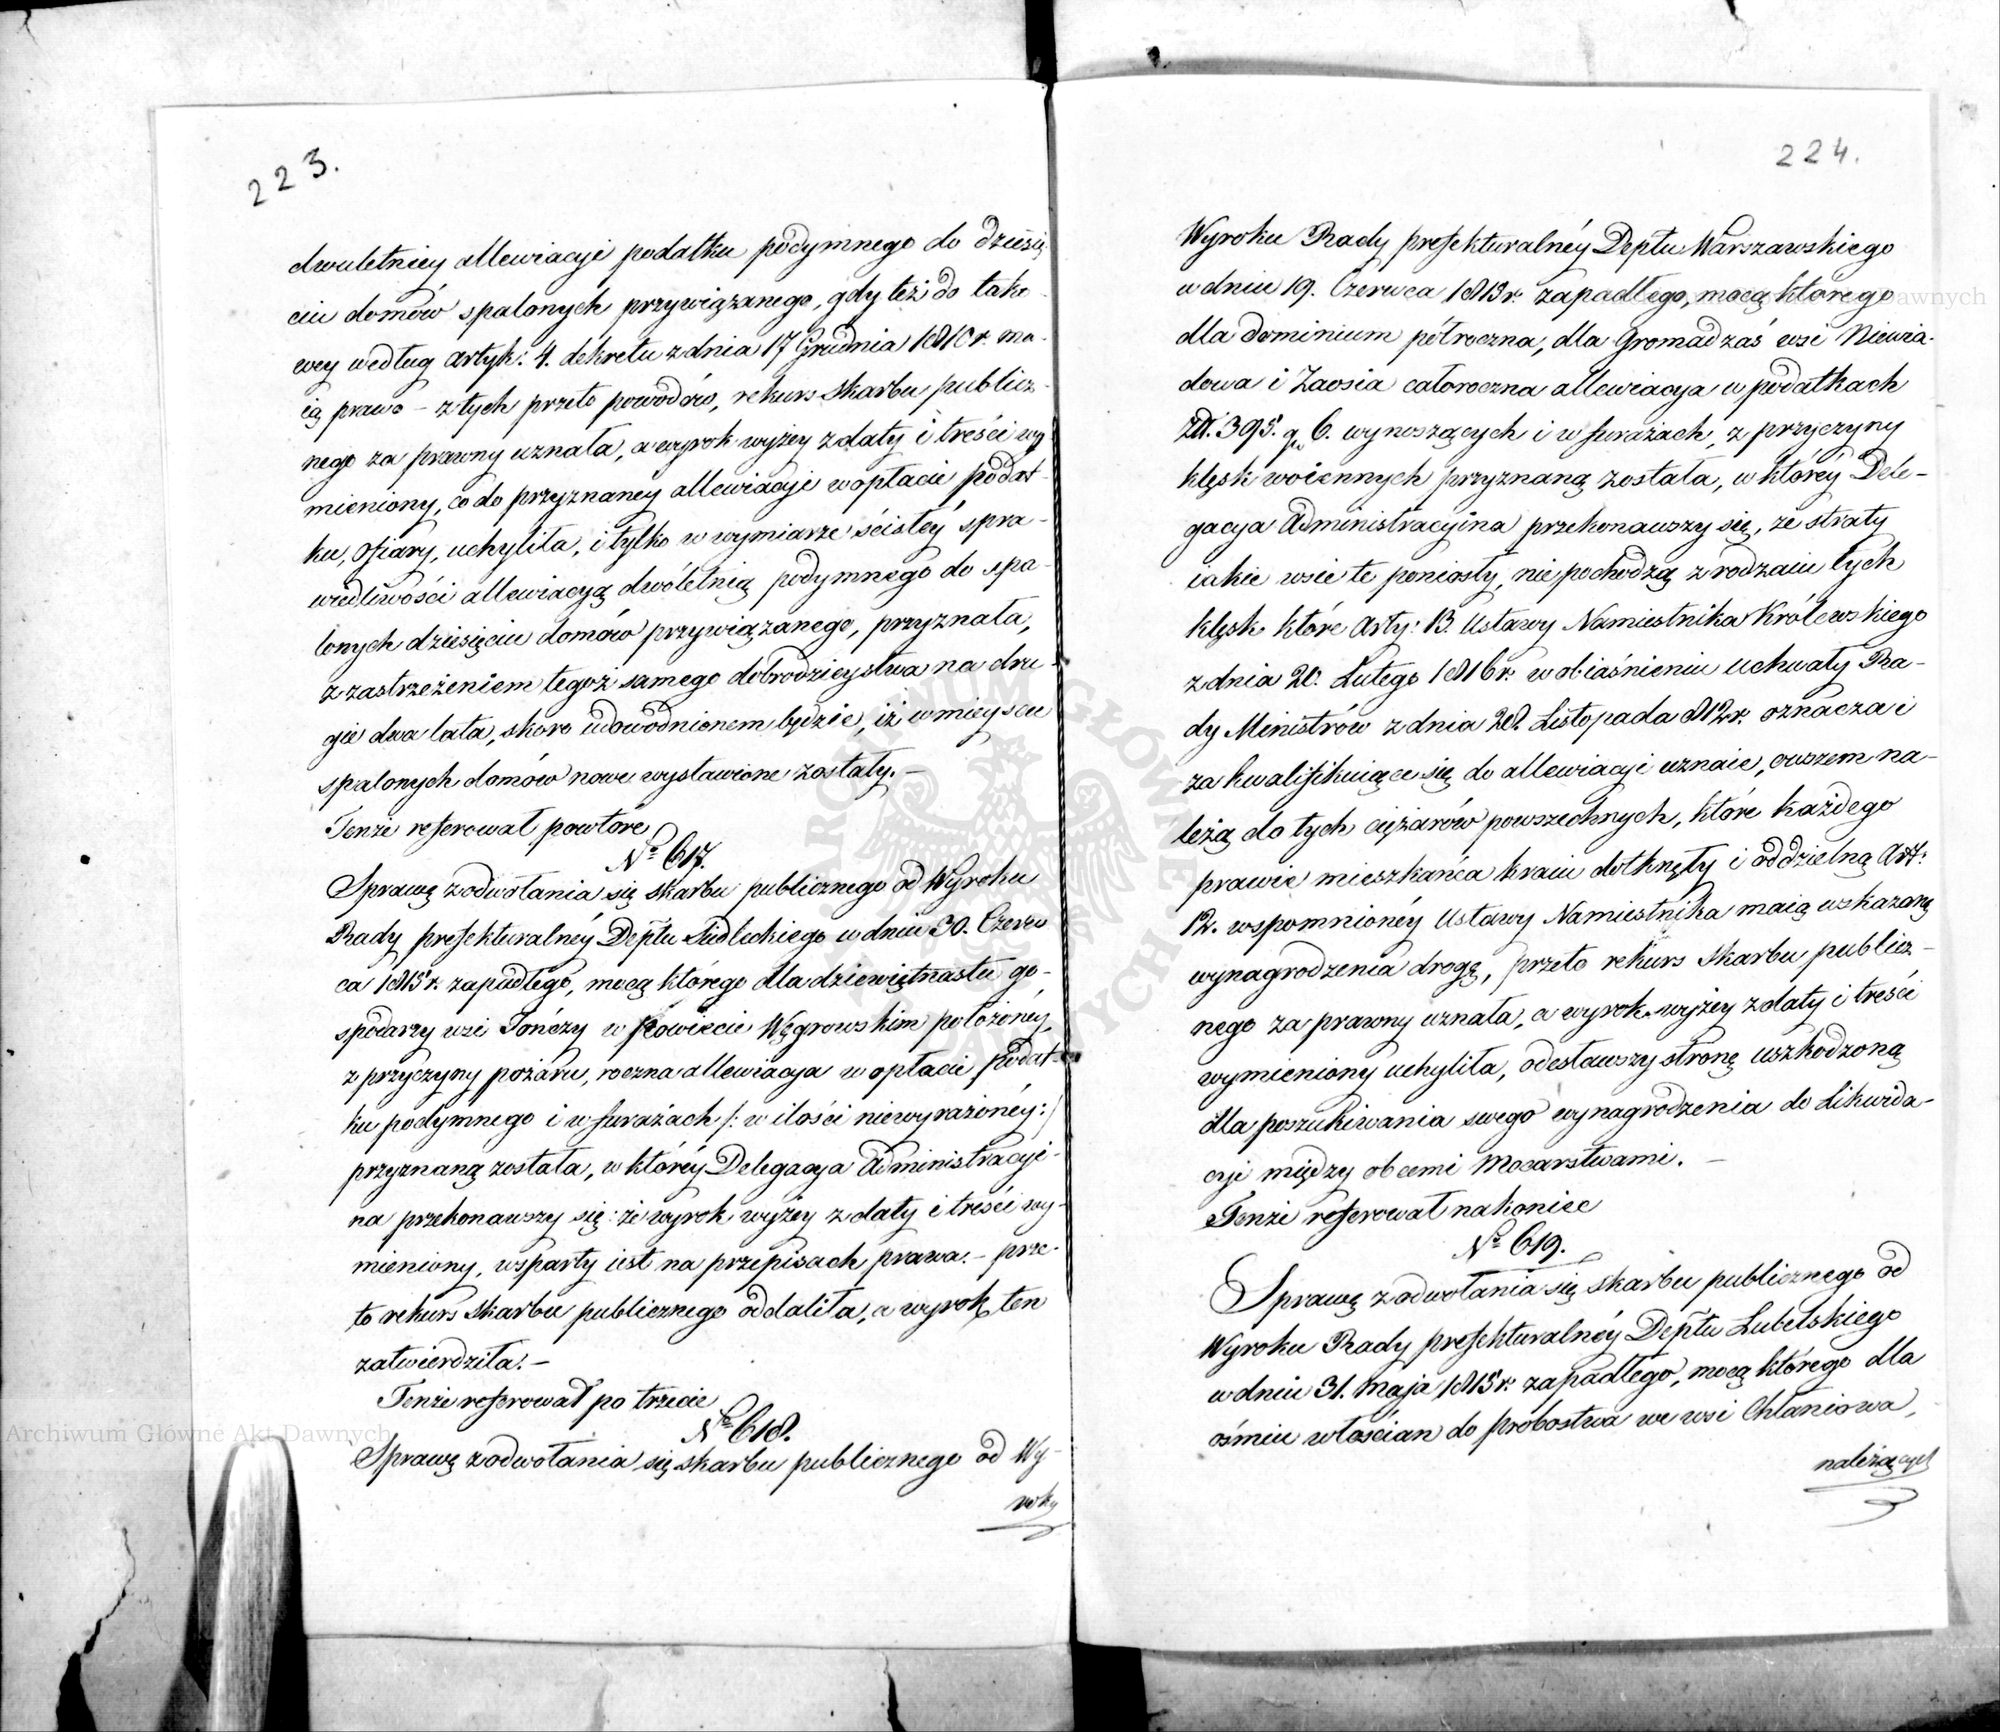 223.
dwuletniey allewiacyi podatku podymnego do dziesię
ciu domów spalonych przywiązanego, gdy też do tako
wey według artyk: 4. dekretu z dnia 17 Grudnia 1810 r. ma-
ią prawo – z tych przeto powodów, rekurs Skarbu publicz-
nego za prawny uznała, a wyrok wyżey z daty i treści wy
mieniony, co do przyznaney allewiacyi w opłacie podat-
ku, Ofiary, uchyliła, i tylko w wymiarze ścisłéy spra-
wiedliwości allewiacyą dwóletnią podymnego do spa-
lonych dziesięciu domów przywiązanego, przyznała,
z zastrzeżeniem tegoż samego dobrodzieystwa na dru-
gie dwa lata, skoro udowodnionem będzie, iż w mieyscu
spalonych domów nowe wystawione zostały. –
Tenże referował powtóre
No 617.
Sprawę z odwołania się skarbu publicznego od Wyroku
Rady prefekturalnéy Deptu Siedleckiego w dniu 30. Czerw
ca 1815 r. zapadłego, mocą którego dla dziewiętnastu go-
spodarzy wsi Tończy w Powiecie Węgrowskim położonéy,
z przyczyny pożaru, roczna allewiacya w opłacie podat-
ku podymnego i w furażach /: w ilości niewyrażonéy :/
przyznaną została, w któréy Delegacya Administracyi-
na przekonawszy się: że wyrok wyżey z daty i treści wy-
mieniony, wsparty iest na przepisach prawa. – prze-
to rekurs Skarbu publicznego oddaliła, a wyrok ten
zatwierdziła. –
Tenże referował po trzecie
No 618.
Sprawę z odwołania się skarbu publicznego od Wy-
roku
224.
Wyroku Rady prefekturalnéy Deptu Warszawskiego
w dniu 19. Czerwca 1813 r. zapadłego, mocą którego
dla dominium półroczna, dla Gromad zaś wsi Niewia-
dowa i Zaosia całoroczna allewiacya w podatkach
Zł. 395. gr 6. wynoszących i w furażach, z przyczyny
klęsk woiennych przyznaną została, w któréy Dele-
gacya Administracyina przekonawszy się, że straty
iakie wsie te poniosły, nie pochodzą z rodzaiu tych
klęsk które Arty: 13. Ustawy Namiestnika Królewskiego
z dnia 20. Lutego 1816 r. w obiaśnieniu uchwały Ra-
dy Ministrów z dnia 28. Listopada 812 r. oznacza i
za kwalifikuiące się do allewiacyi uznaie, owszem na-
leżą do tych ciężarów powszechnych, które każdego
prawie mieszkańca kraiu dotknęły i oddzielną Art:
12. wspomnionéy Ustawy Namiestnika maią wskazaną
wynagrodzenia drogę, przeto rekurs Skarbu publicz-
nego za prawny uznała, a wyrok wyżey z daty i treści
wymieniony uchyliła, odesławszy stronę uszkodzoną
dla poszukiwania swego wynagrodzenia do Likwida-
cyi między obcemi Mocarstwami. –
Tenże referował nakoniec
No 619.
Sprawę z odwołania się skarbu publicznego od
Wyroku Rady prefekturalnéy Deptu Lubelskiego
w dniu 31. Maja 1815 r. zapadłego, mocą którego dla
ośmiu włościan do probostwa we wsi Chłaniowa,
należących
Archiwum Główne Akt Dawnych